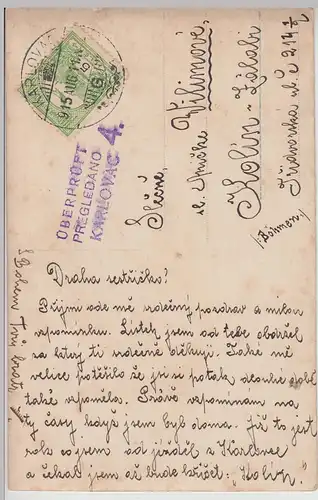 KARLOVAC
915
ÜBERPRÜFT
PREGLEDANO
KARLOVAC 4.
Slečně,
Vilímové,
Kolín - Zálabí
č. 214
(Böhmen)
Drahá sestřičko!
Přijmi ode mě srdečný pozdrav a milou
vzpomínku. Lístek jsem od tebe obdržel
za který ti srdečně děkuji. Také mě
velice potěšilo že jsi se po tak dlouhé době
také vzpomněla. Právě vzpomínám na
ty časy když jsem byl doma. Již to jest
rok co jsem od jížděl z Karlovce
a čekal jsem až bude křičet: „Kolín."
S Bohem Tvůj bratr